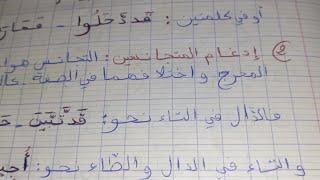 أو في كلمتين: قَد دَّخَلُوا -
② إدغام المتجانسين: التجانس هو ا
المخرج واختلافهما في الصفة
فالدّال في التاء نحو: قَدتَّبَيَّنَ -
والتاء في الدال والطّاء نحو: أُجِيـ